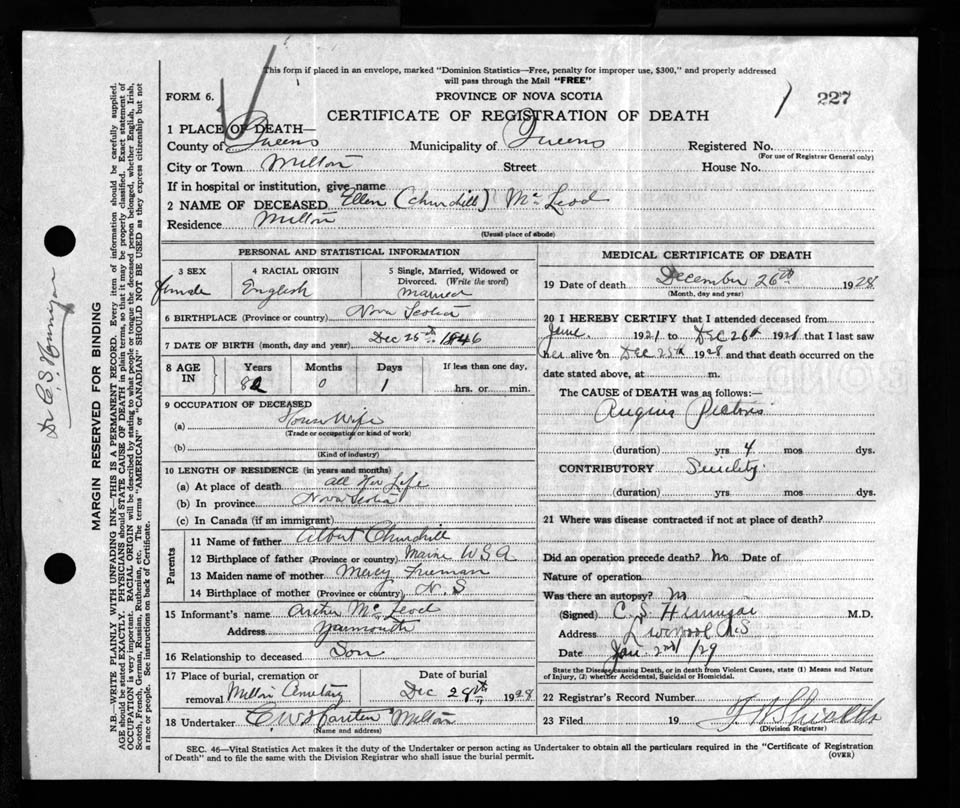 This form if placed in an envelope, marked "Dominion Statistics—Free, penalty for improper use, $300," and properly addressed
will pass through the Mail "FREE"
FORM 6.
PROVINCE OF NOVA SCOTIA
227
CERTIFICATE OF REGISTRATION OF DEATH
1 PLACE OF DEATH—
County of Queens Municipality of Queens Registered No.
(For use of Registrar General only)
City or Town Milton Street House No.
If in hospital or institution, give name
2 NAME OF DECEASED Ellen (Churchill) Mc Leod
Residence Milton
(Usual place of abode)
PERSONAL AND STATISTICAL INFORMATION
3 SEX 4 RACIAL ORIGIN 5 Single, Married, Widowed or
Divorced. (Write the word)
female English married
6 BIRTHPLACE (Province or country) Nova Scotia
7 DATE OF BIRTH (month, day and year) Dec 25th 1846
8 AGE IN Years Months Days If less than one day,
82 0 1 hrs. or min.
9 OCCUPATION OF DECEASED
(a) House Wife
(Trade or occupation or kind of work)
(b)
(Kind of industry)
10 LENGTH OF RESIDENCE (in years and months)
(a) At place of death all Her Life
(b) In province Nova Scotia
(c) In Canada (if an immigrant)
Parents
11 Name of father Albert Churchill
12 Birthplace of father (Province or country) Maine USA
13 Maiden name of mother Mercy Freeman
14 Birthplace of mother (Province or country) N.S
15 Informant's name Mc Leod
Address Yarmouth
16 Relationship to deceased Son
17 Place of burial, cremation or Date of burial
removal Milton Cemetary Dec 28th 1928
18 Undertaker Milton
(Name and address)
MEDICAL CERTIFICATE OF DEATH
19 Date of death December 26th 1928
(Month, day and year)
20 I HEREBY CERTIFY that I attended deceased from
June 1921 to Dec 26th 1928 that I last saw
her alive on Dec 25th 1928 and that death occurred on the
date stated above, at m.
The CAUSE OF DEATH was as follows:—
Angina Pectoris
(duration) yrs 4 mos dys.
CONTRIBUTORY Senility
(duration) yrs mos dys.
21 Where was disease contracted if not at place of death?
Did an operation precede death? no Date of
Nature of operation
Was there an autopsy? no
(Signed) C. S. M.D.
Address Liverpool N.S
Date Jan 2nd /29
State the Disease causing Death, or in death from Violent Causes, state (1) Means and Nature
of Injury, (2) whether Accidental, Suicidal or Homicidal.
22 Registrar's Record Number
23 Filed 19
(Division Registrar)
SEC. 46—Vital Statistics Act makes it the duty of the Undertaker or person acting as Undertaker to obtain all the particulars required in the "Certificate of Registration
of Death" and to file the same with the Division Registrar who shall issue the burial permit.
(OVER)
MARGIN RESERVED FOR BINDING
N.B.—WRITE PLAINLY WITH UNFADING INK—THIS IS A PERMANENT RECORD. Every item of information should be carefully supplied.
AGE should be stated EXACTLY. PHYSICIANS should STATE CAUSE OF DEATH in plain terms, so that it may be properly classified. Exact statement of
OCCUPATION is very important. RACIAL ORIGIN will be described by stating to what people or tongue the deceased person belonged, whether English, Irish,
Scotch, French, German, Russian, Ruthenian, etc. The terms "AMERICAN" or "CANADIAN" SHOULD NOT BE USED as they express citizenship but not
a race or people. See instructions on back of Certificate.
Dr C. S.